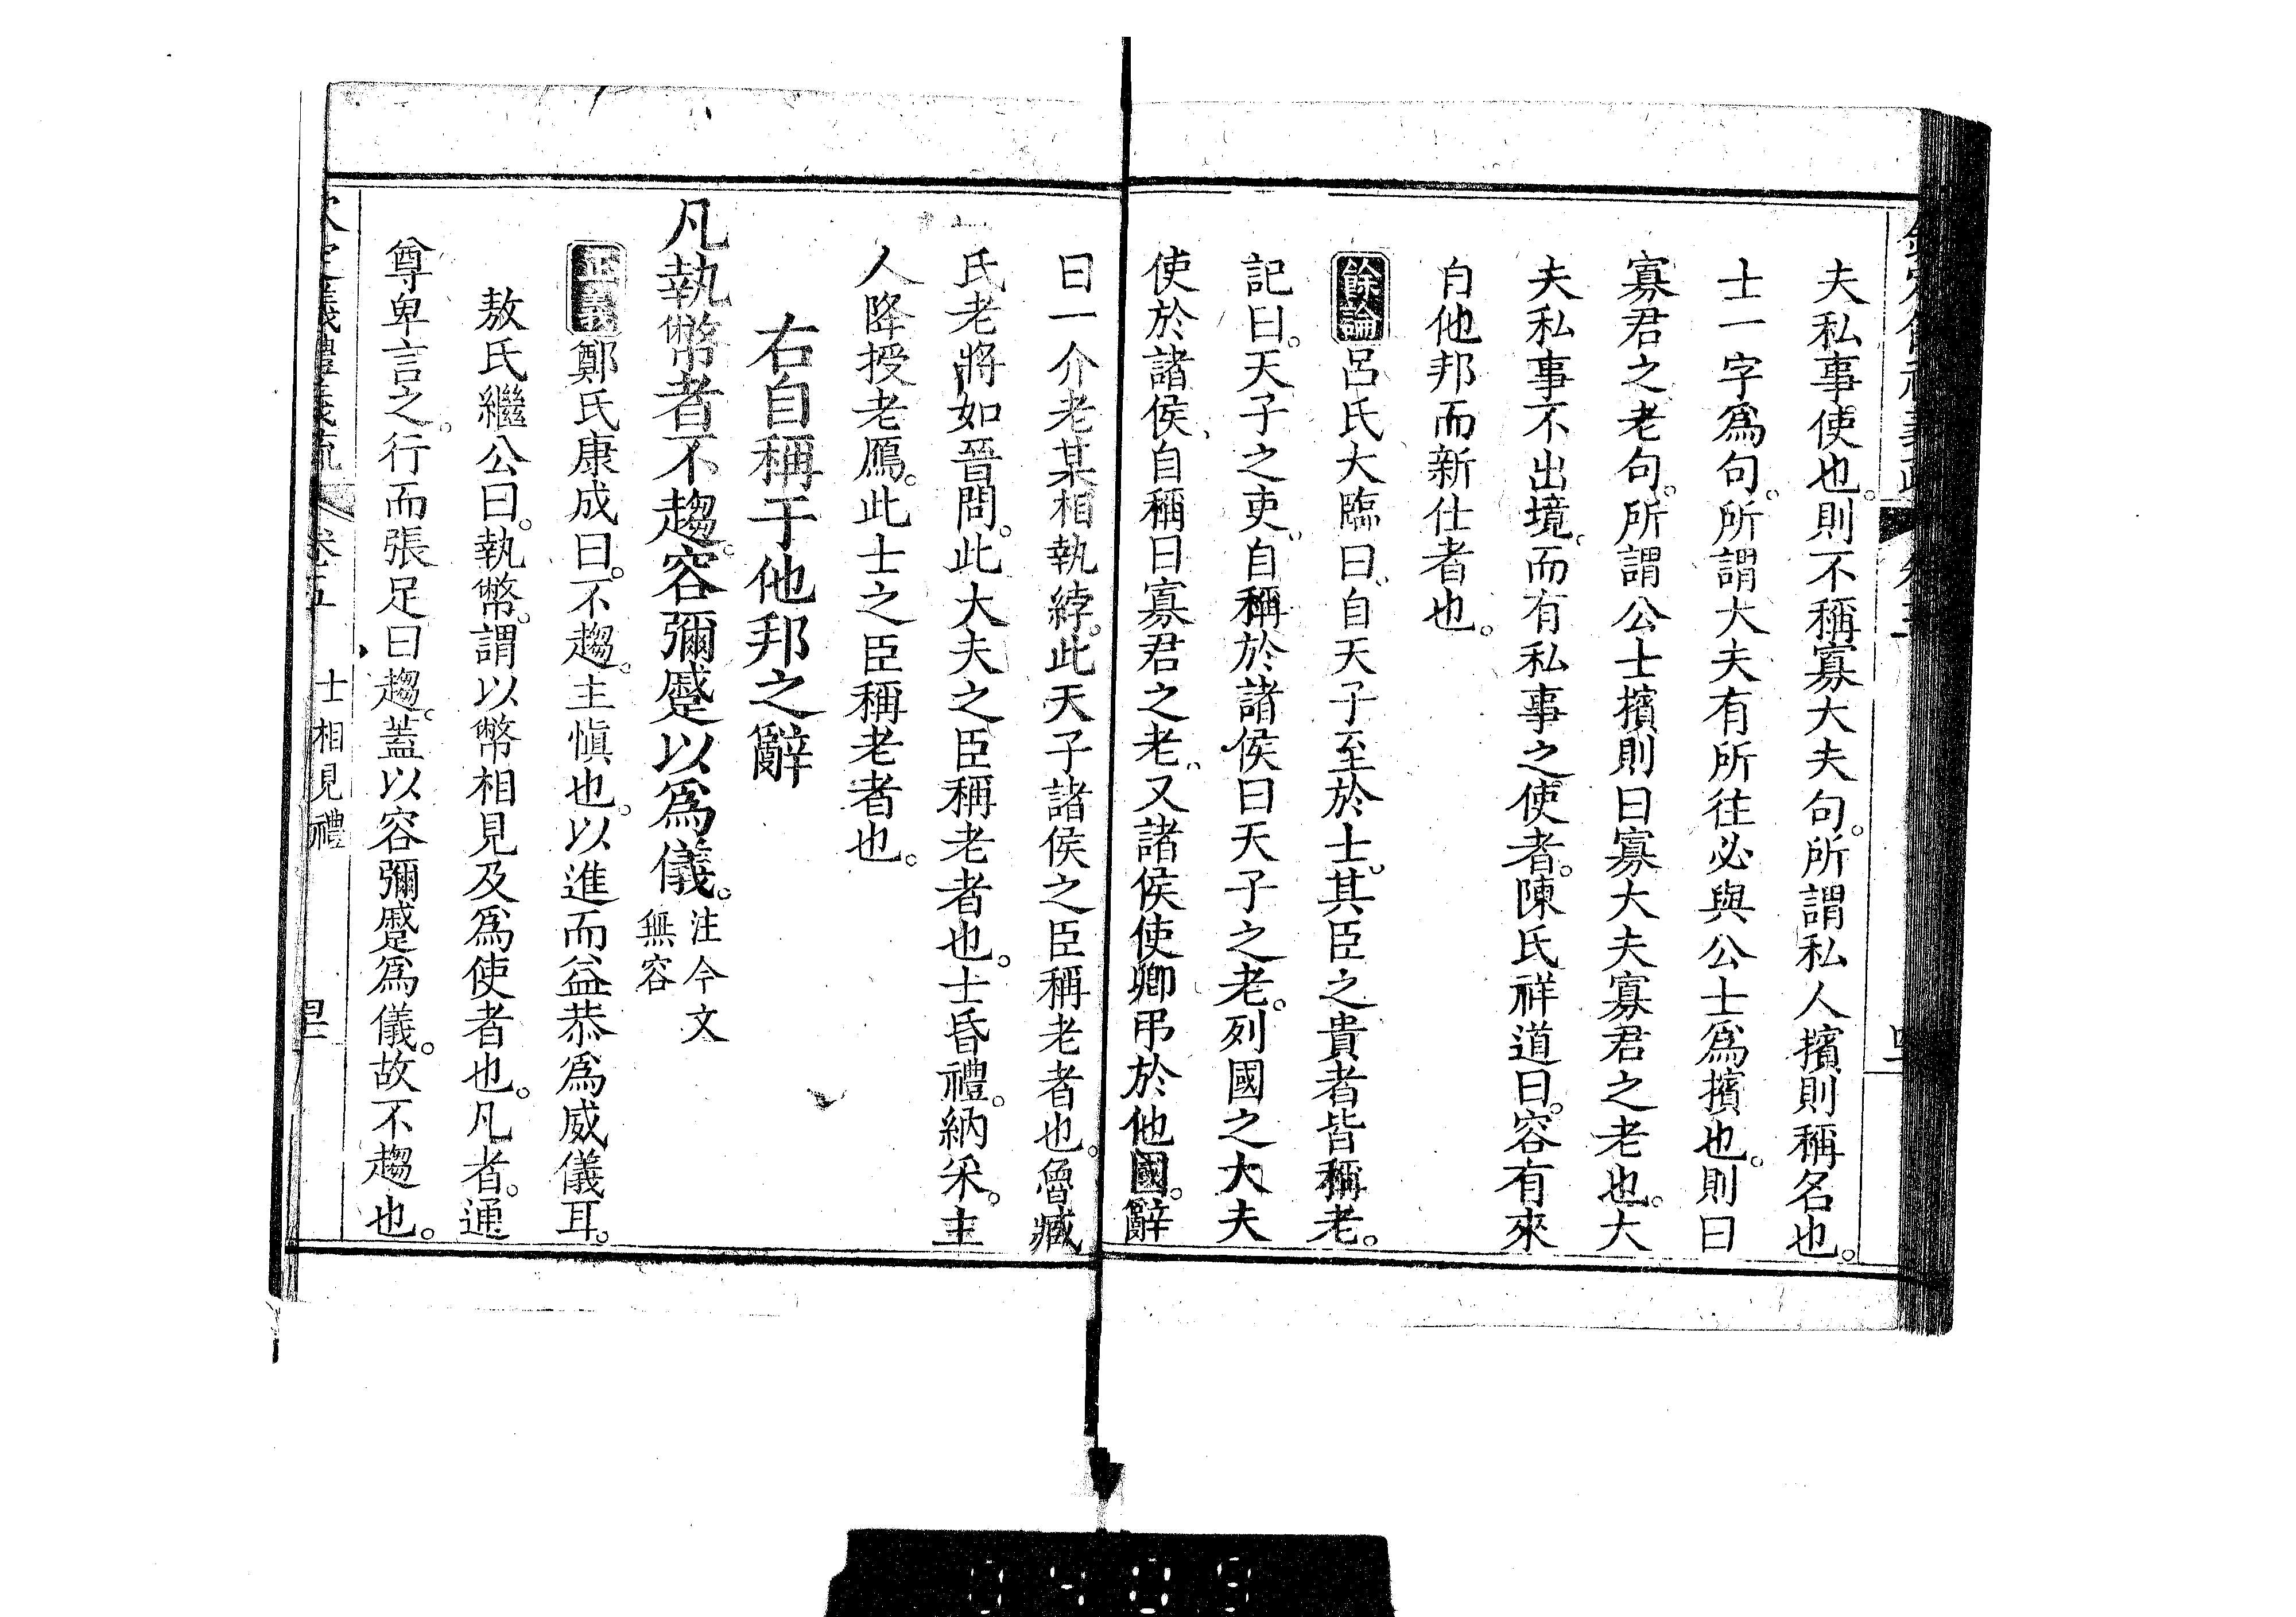 夫私事使也。則不稱寡大夫句。所謂私人擯則稱名也。
士一字爲句。所謂大夫有所往必與公士爲擯也。則曰
寡君之老句。所謂公士擯則曰寡大夫寡君之老也。大
夫私事不出境。而有私事之使者。陳氏祥道曰。容有來
自他邦而新仕者也。
餘論呂氏大臨曰。自天子至於士。其臣之貴者皆稱老。
記曰。天子之吏。自稱於諸侯曰天子之老。列國之大夫
使於諸侯。自稱曰寡君之老。又諸侯使卿弔於他國。辭
曰一介老某相執紼。此天子諸侯之臣稱老者也。魯臧
氏老將如晉問。此大夫之臣稱老者也。士昏禮。納采。主
人降授老鴈。此士之臣稱老者也。
右自稱于他邦之辭
凡執幣者不趨。容彌蹙以爲儀。注今文無容
正義鄭氏康成曰。不趨。主愼也。以進而益恭爲威儀耳。
敖氏繼公曰。執幣。謂以幣相見及爲使者也。凡者。通
尊卑言之。行而張足曰趨。蓋以容彌蹙爲儀。故不趨也。
欽定儀禮義疏 卷五 士相見禮